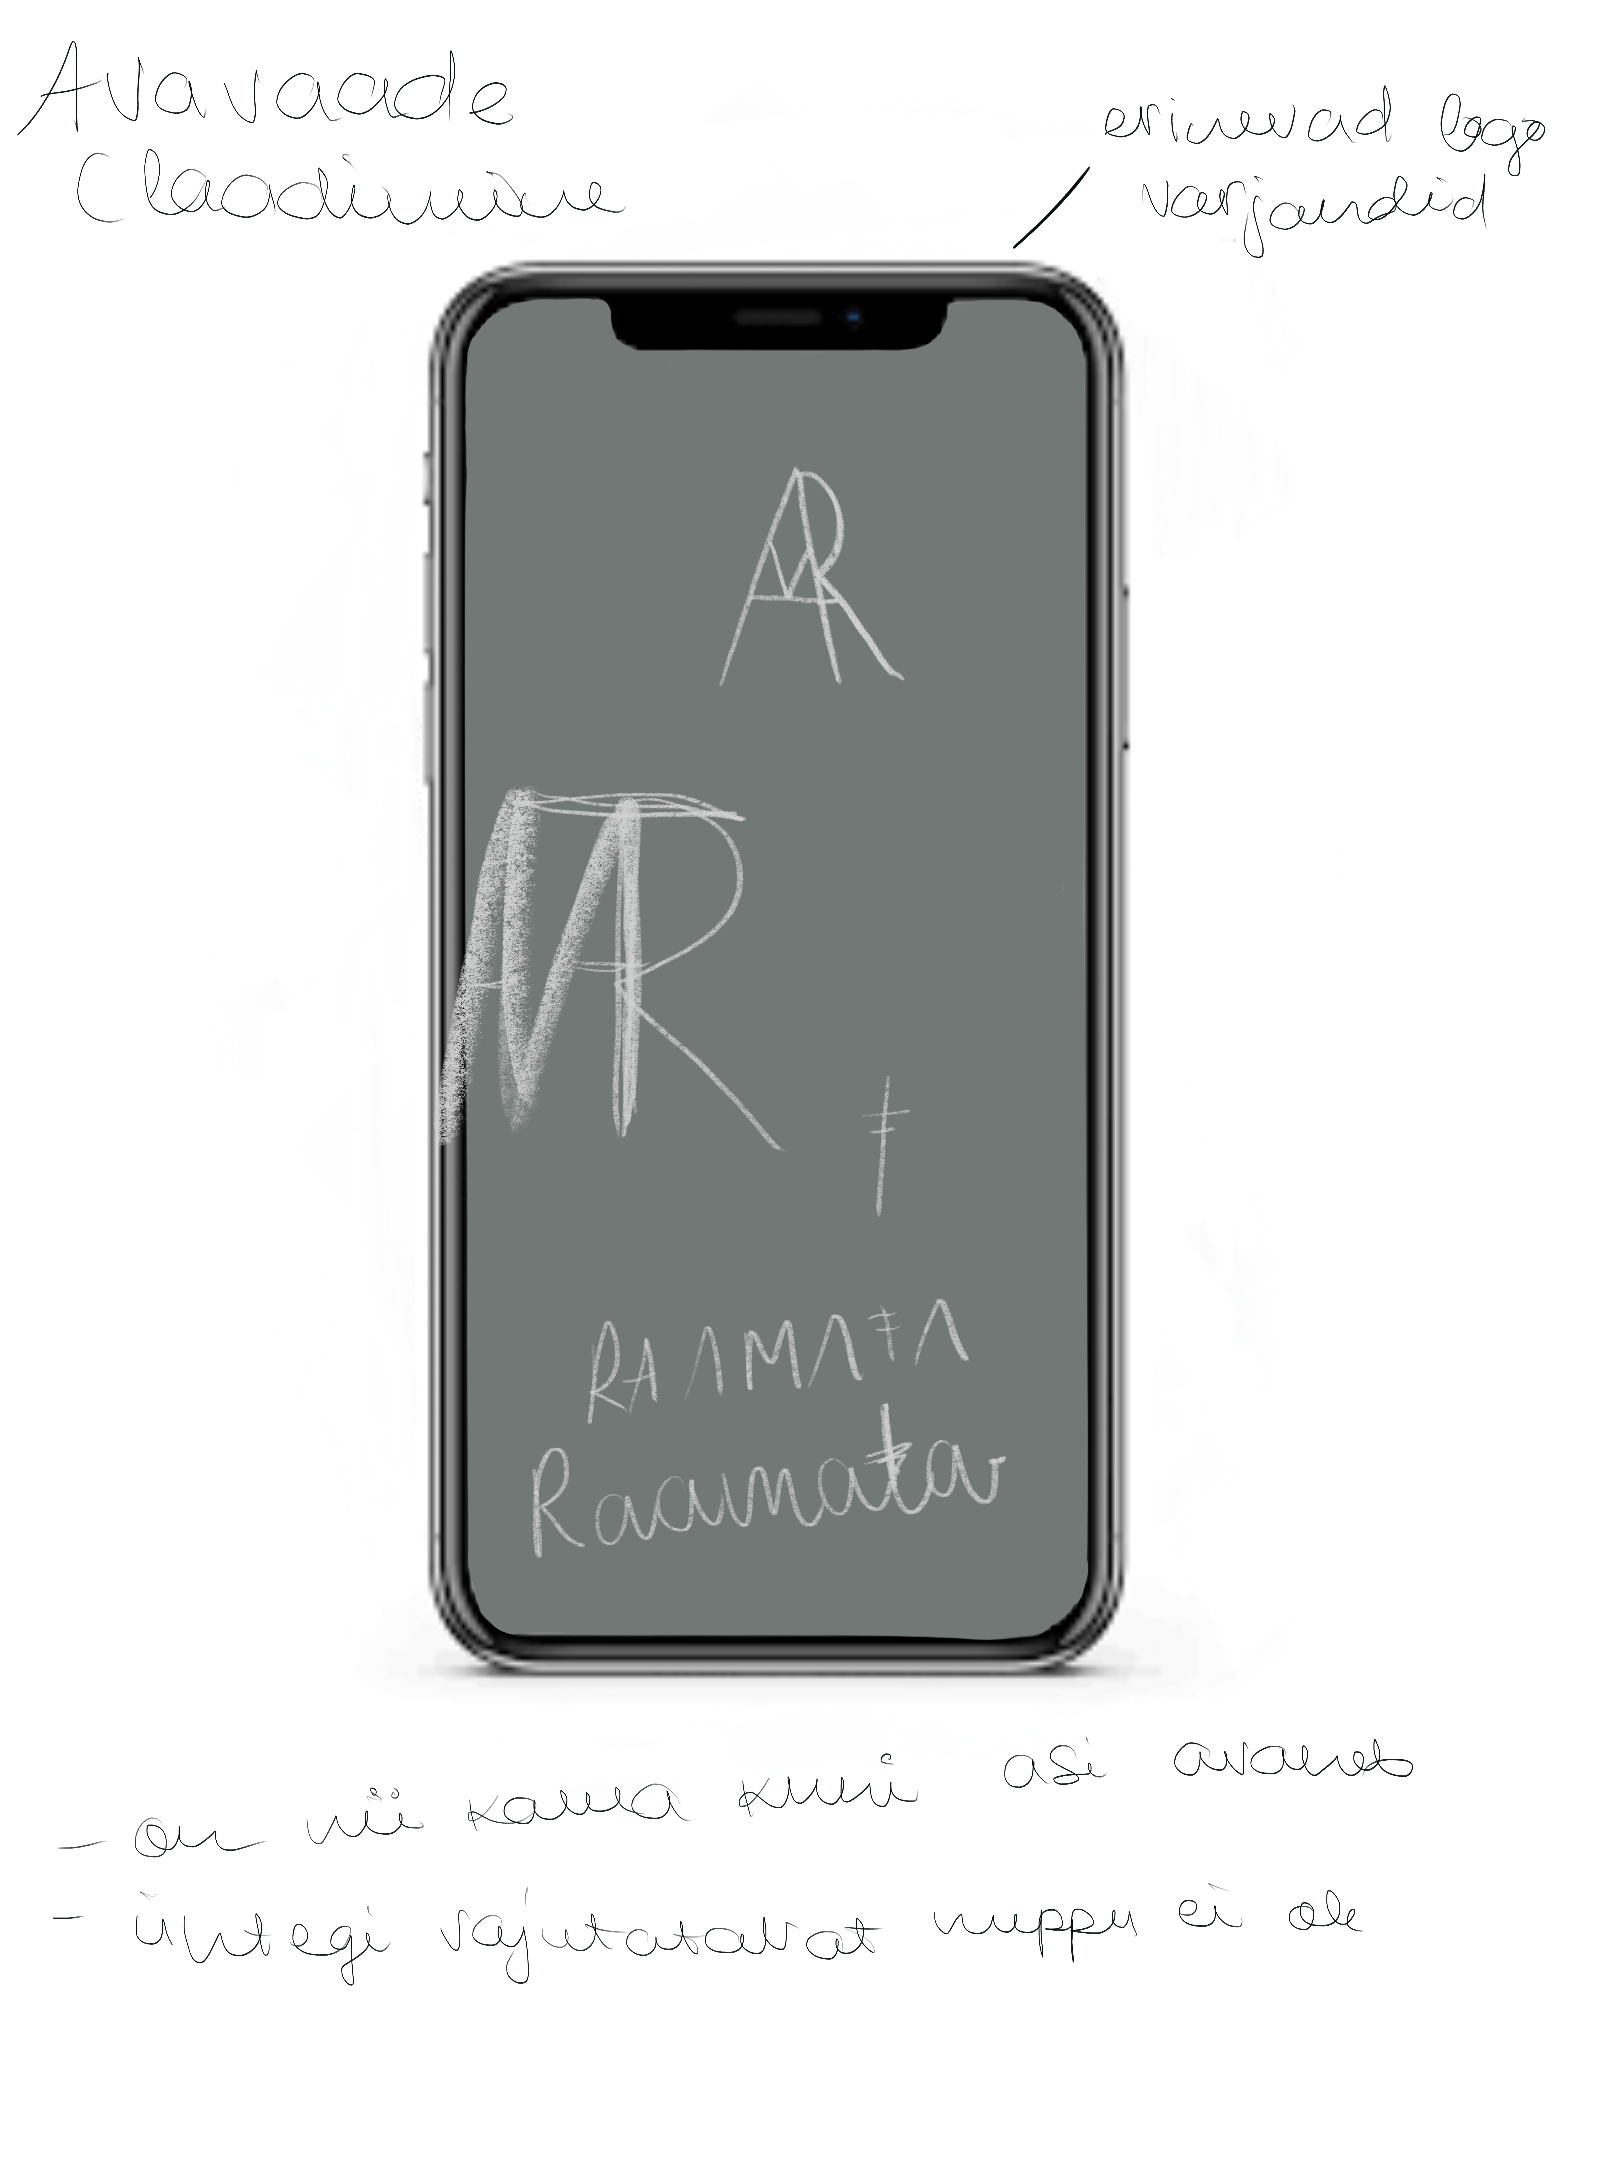 Avavaade
(laadimine
erinevad logo
varjandid
AR
MR
ŧ
RAAMAŦA
Raamaŧa
- on nii kaua kuni asi avaneb
- ühtegi vajutatavat nuppu ei ole